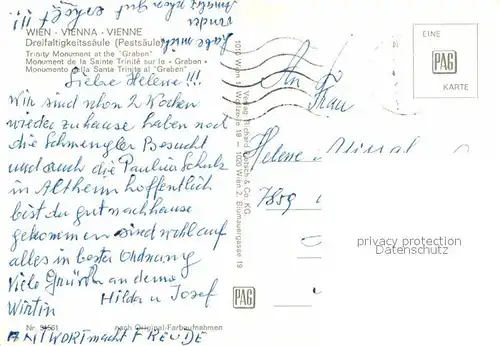 WIEN - VIENNA - VIENNE
Dreifaltigkeitssäule (Pestsäule)
Trinity Monument at the "Graben"
Monument de la Sainte Trinité sur la « Graben »
Monumento alla Santa Trinita al "Graben"
Liebe Helene!!!
Wir sind schon 2 Wochen
wieder zuhause haben noch
die Schmengler Besucht
und auch die Paulina Schulz
in Altheim hoffentlich
bist du gut nachhause
gekommen sind wohl auf
alles in bester Ordnung
Viele Grüße an deine
Wirtin Hilda u Josef
Nr. nach Original-Farbaufnahmen
ANTWORT macht FREUDE
Verlag Richard & Co. KG.
1014 Wien 1, 1020 Wien 2, Blumauergasse 19
PAG
An
Frau
Helene
7859
EINE
PAG
KARTE
privacy protection
Datenschutz